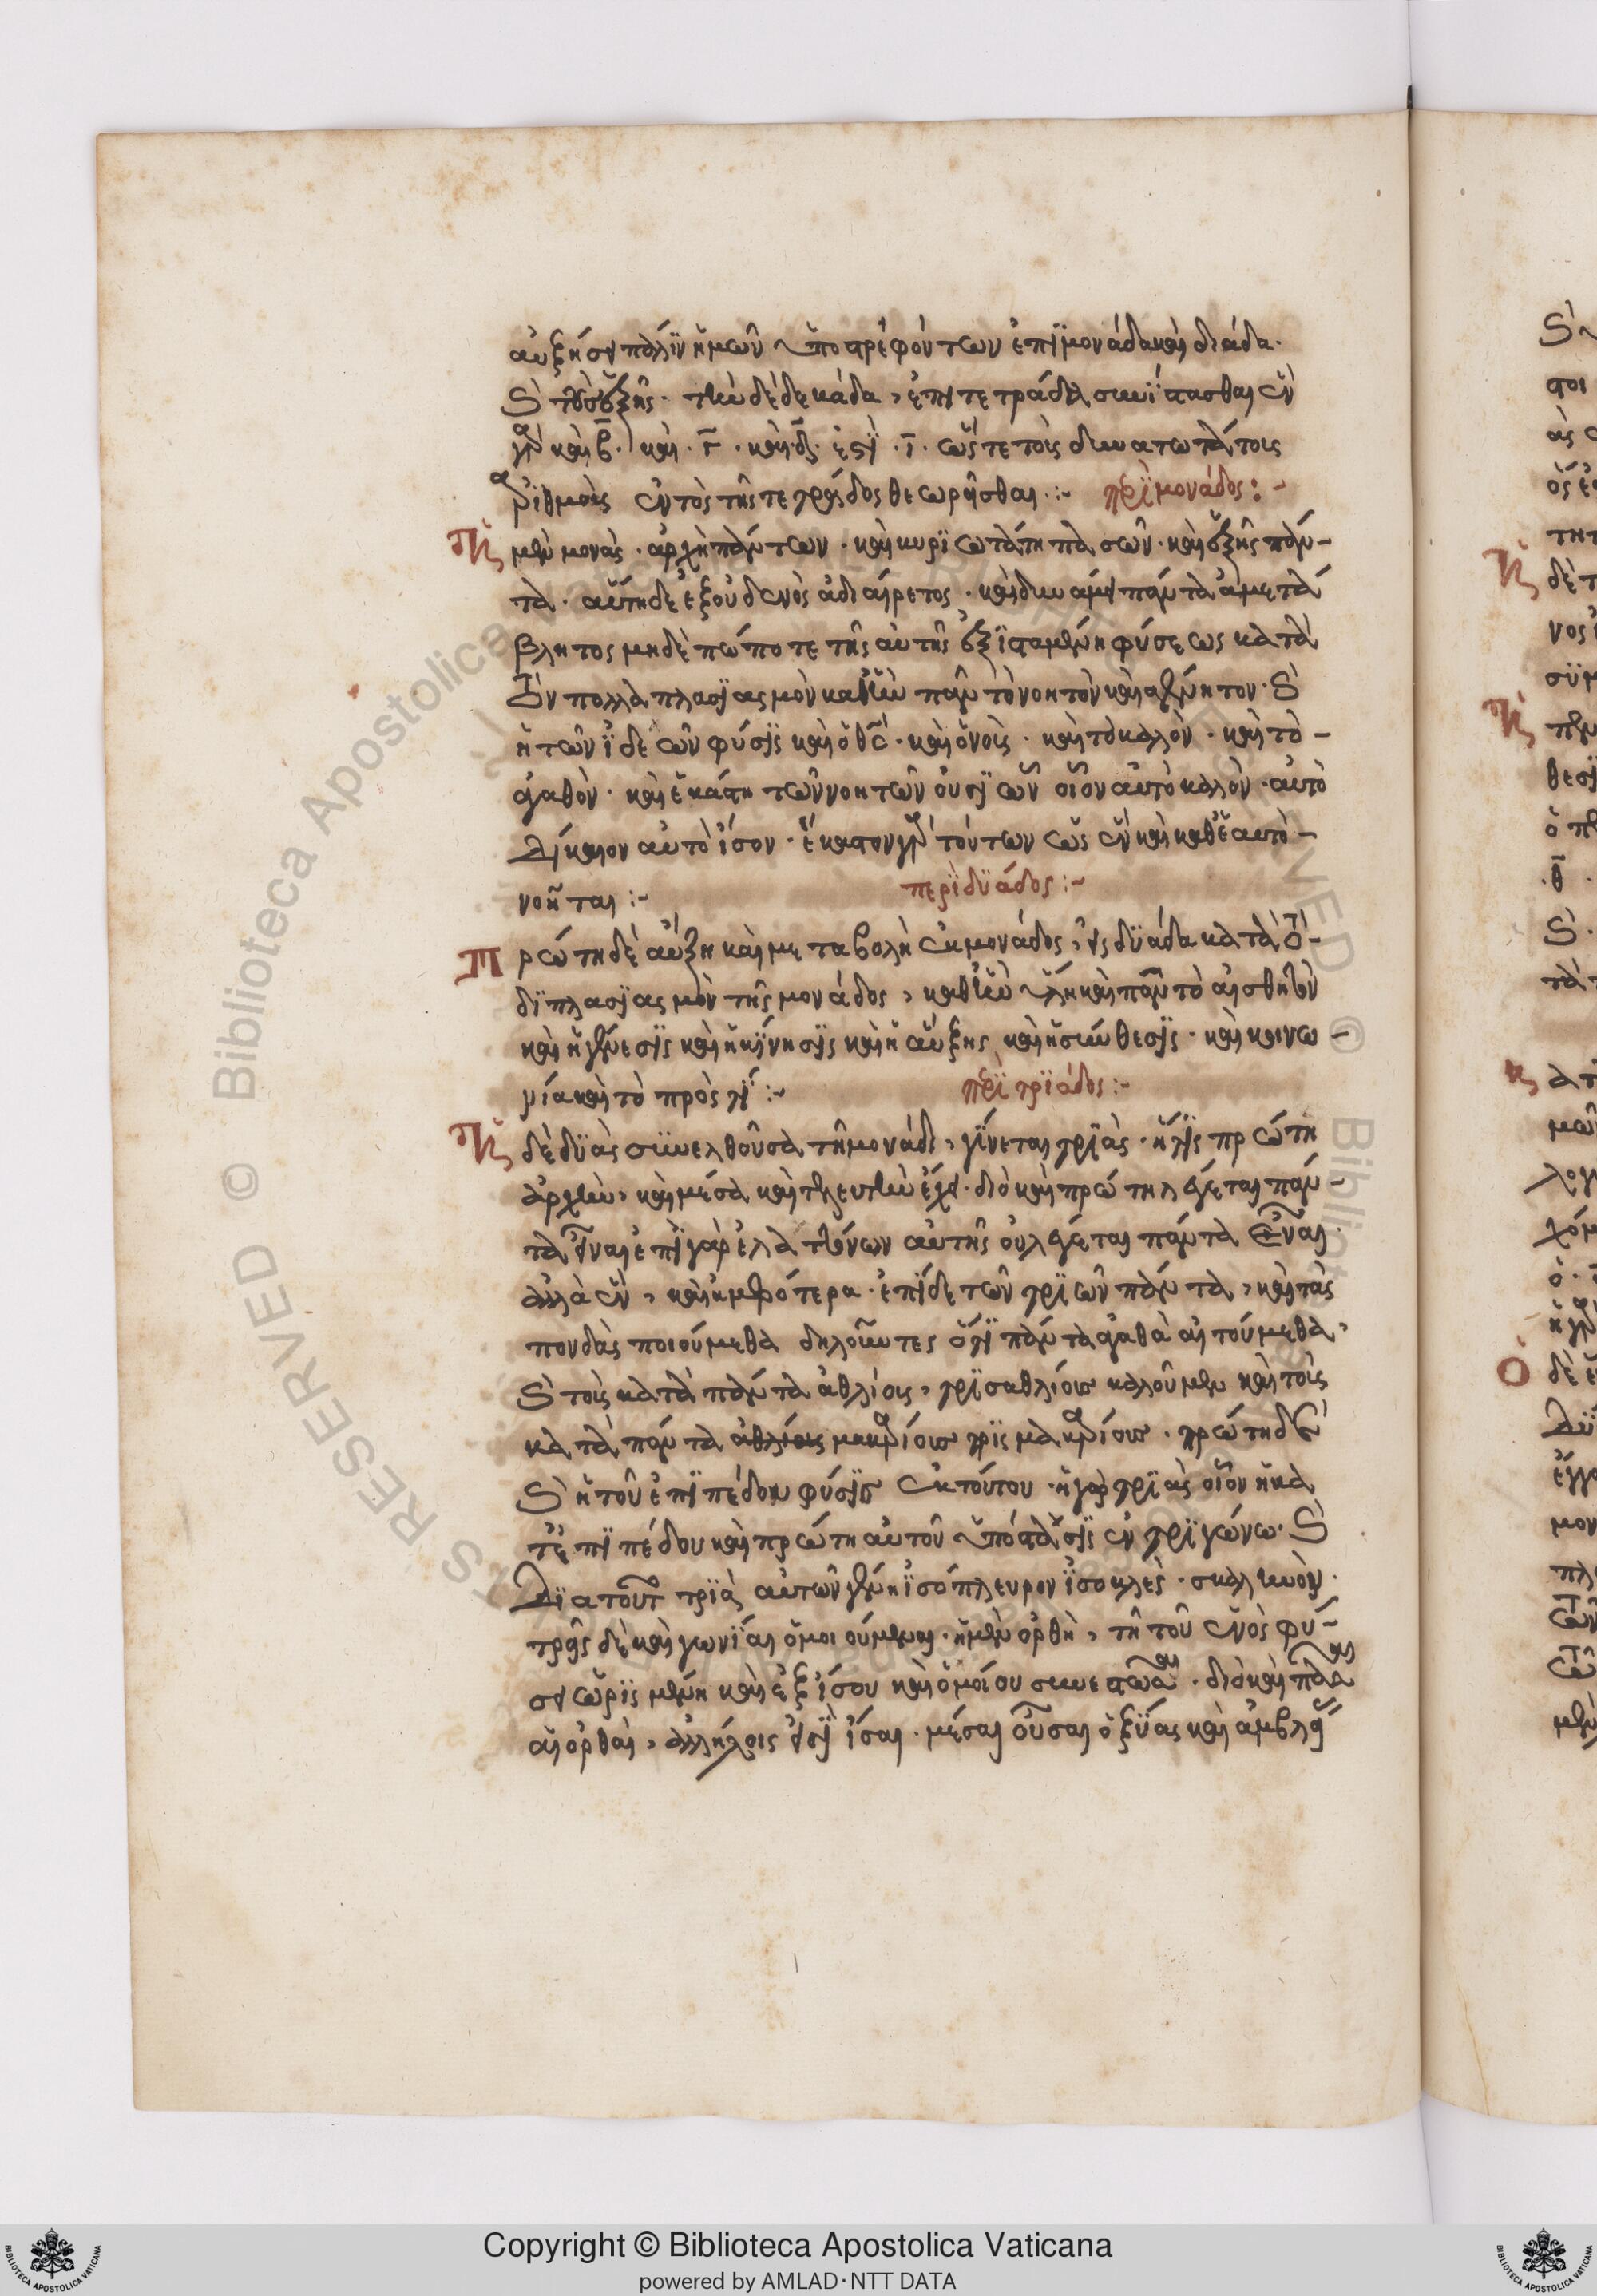 αὐξήσει πάλιν ἡμῶν ὑποστρεφόντων ἐπϊ μονάδα καὶ διάδα·
καὶ τοὺς ἑξῆς· τὴν δὲ δεκάδα, ἐπι τετράδα συνίστασθαι ἓν
γὰρ καὶ β̅· καὶ · γ̅ · καὶ δ̅· ἐστὶ · ι̅ · ὥστε τοὺς δυνατωτάτους
ἀριθμοὺς ἐντὸς τῆς τετράδος θεωρεῖσθαι :~ περὶ μονάδος :~
Ἡ μὲν μονὰς · ἀρχὴ πάντων · καὶ κυριωτάτη πασῶν · καὶ ἐξ ἧς πάν-
τα · αὕτη δὲ ἐξ οὐδενὸς ἀδιαίρετος · καὶ δυνάμει πάντα ἀμετά
βλητος μηδὲ πώποτε τῆς αὐτῆς ἐξισταμένη φύσεως κατὰ
τὸν πολλαπλασϊασμὸν καθ' ἣν πᾶν τὸ νοητὸν καὶ ἀγένητον · καὶ
ἡ τῶν ϊδεῶν φύσϊς καὶ ὁ θς · καὶ ὁ νοῦς · καὶ τὸ καλὸν · καὶ τὸ -
ἀγαθὸν · καὶ ἑκάστη τῶν νοητῶν οὐσϊῶν οἷον αὐτὸ καλὸν · αὐτὸ
δίκαιον αὐτὸ ἴσον · ἕκαστον γὰρ τούτων ὡς ἓν καὶ καθ' ἑαυτὸ -
νοεῖται :~ περὶ δϋάδος :~
Πρώτη δὲ αὔξη καὶ μεταβολὴ ἐκ μονάδος, εἰς δϋάδα κατὰ τὸ -
δϊπλασϊασμὸν τῆς μονάδος, καθ' ἣν ὕλη καὶ πᾶν τὸ αἰσθητὸν
καὶ ἡ γένεσϊς καὶ ἡ κίνησϊς καὶ ἡ αὔξης καὶ ἡ σύνθεσϊς · καὶ κοινω -
νία καὶ τὸ πρός τϊ :~ περὶ τρϊάδος :~
Ἡ δὲ δϋὰς συνελθοῦσα τῇ μονάδι, γίνεται τρϊὰς · ἥτϊς πρώτη
ἀρχὴν, καὶ μέσα καὶ τελευτὴν ἔχει · διὸ καὶ πρώτη λέγεται πάν -
τα εἶναι ἐπὶ γὰρ ἐλαττόνων αὐτῆς οὐ λέγεται πάντα εἶναι ·
ἀλλὰ ἓν, καὶ ἀμφότερα · ἐπὶ δὲ τῶν τρϊῶν πάντα, καὶ τὰς
πονδὰς ποιούμεθα δηλοῦντες ὅτϊ πάντα ἀγαθὰ αἰτούμεθα,
καὶ τοὺς κατὰ πάντα ἀθλίους, τρϊσαθλίους καλοῦμεν καὶ τοὺς
κατὰ πάντα μακαρίους τρϊς μακαρίους · πρώτη δὲ
καὶ ἡ τοῦ ἐπϊπέδου φύσϊς ἐκ τούτου · ἡ γὰρ τρϊὰς οἷον εἰκὰ
τ' ἐπϊπέδου καὶ πρώτη αὐτοῦ ὑπόστασϊς ἐν τρϊγώνω · καὶ
δϊὰ τοῦτ τρϊὰ αὐτῶν γένη ϊσόπλευρον ϊσοκλὲς · σκαληνὸν ·
τρεῖς δὲ καὶ γωνϊαι ὅμοι οὐμεναι · ἡ μὲν ὀρθὴ, τῇ τοῦ ἑνὸς φύ -
σει ὡρϊσμένη καὶ ἐξ ἴσου καὶ ὁμοίου συνεστῶσα · διὸ καὶ πᾶσαι
αἱ ὀρθαὶ, ἀλλήλοις εἰσϊ ἴσαι · μέσαι οὖσαι ὀξϋας καὶ ἀμβλεί